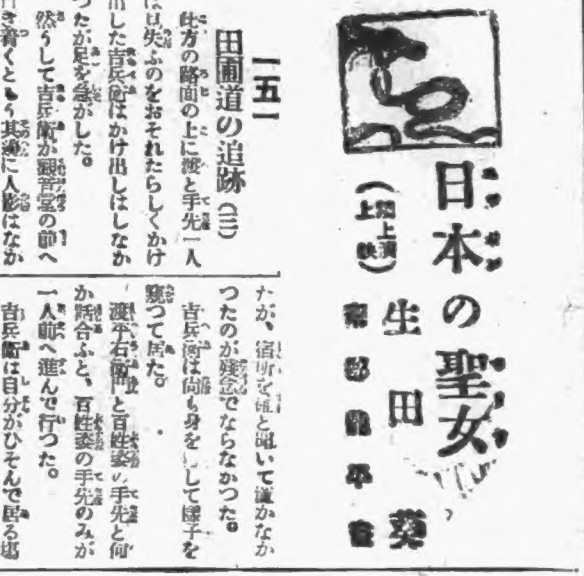 日本の聖女
生田葵
一五一
田圃道の追跡(三)
此方の路面の上に渡と手先一人
は見失ふのをおそれたらしくかけ
出した吉兵衛はかけ出しはしなか
つたが足を急がした。
然うして吉兵衛が観音堂の前へ
き着くともう其邊に人影はなか
たが、宿所を確と聞いて置かなか
つたのが残念でならなかつた。
吉兵衛は尚も身を して様子を
窺つて居た。
渡平右衛門と百姓姿の手先と何
か話合ふと、百姓姿の手先のみが
一人前へ進んで行つた。
吉兵衛は自分がひそんで居る場